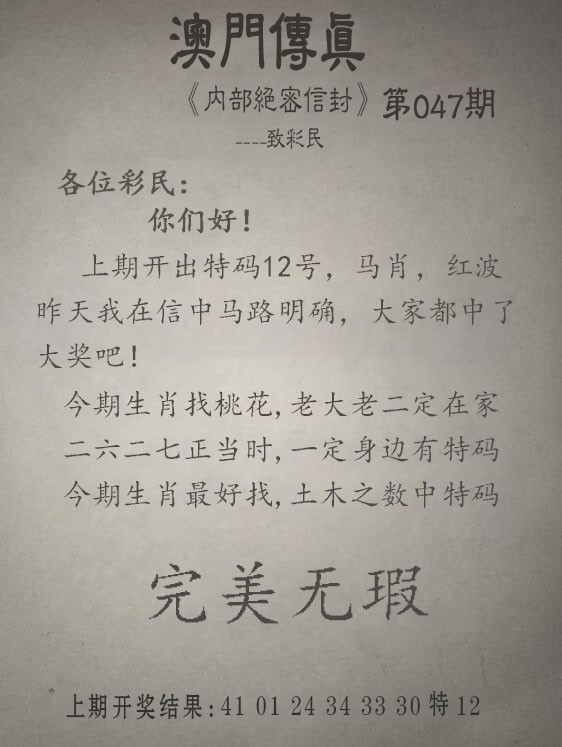 澳門傳真
《内部絕密信封》第047期
----致彩民
各位彩民:
你们好!
上期开出特码12号，马肖，红波
昨天我在信中马路明确，大家都中了
大奖吧!
今期生肖找桃花,老大老二定在家
二六二七正当时,一定身边有特码
今期生肖最好找,土木之数中特码
完美无瑕
上期开奖结果:41 01 24 34 33 30 特 12